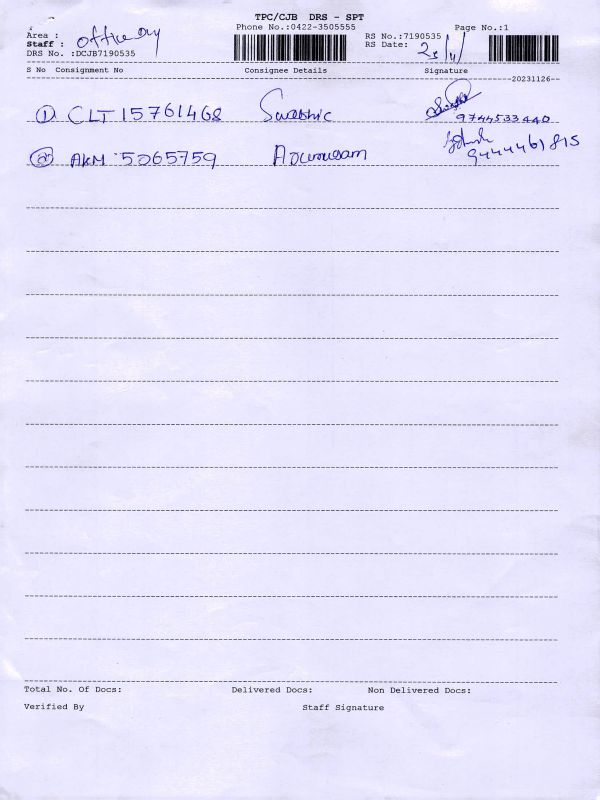 TPC/CJB DRS - SPT
Phone No.:0422-3505555 Page No.:1
Area : RS No.:7190535
Staff : RS Date:
DRS No. :DCJB7190535
S No Consignment No Consignee Details Signature
20231126
1 CLT 15761468 9744533440
2 AKM 5065759 9444461815
Total No. Of Docs: Delivered Docs: Non Delivered Docs:
Verified By Staff Signature